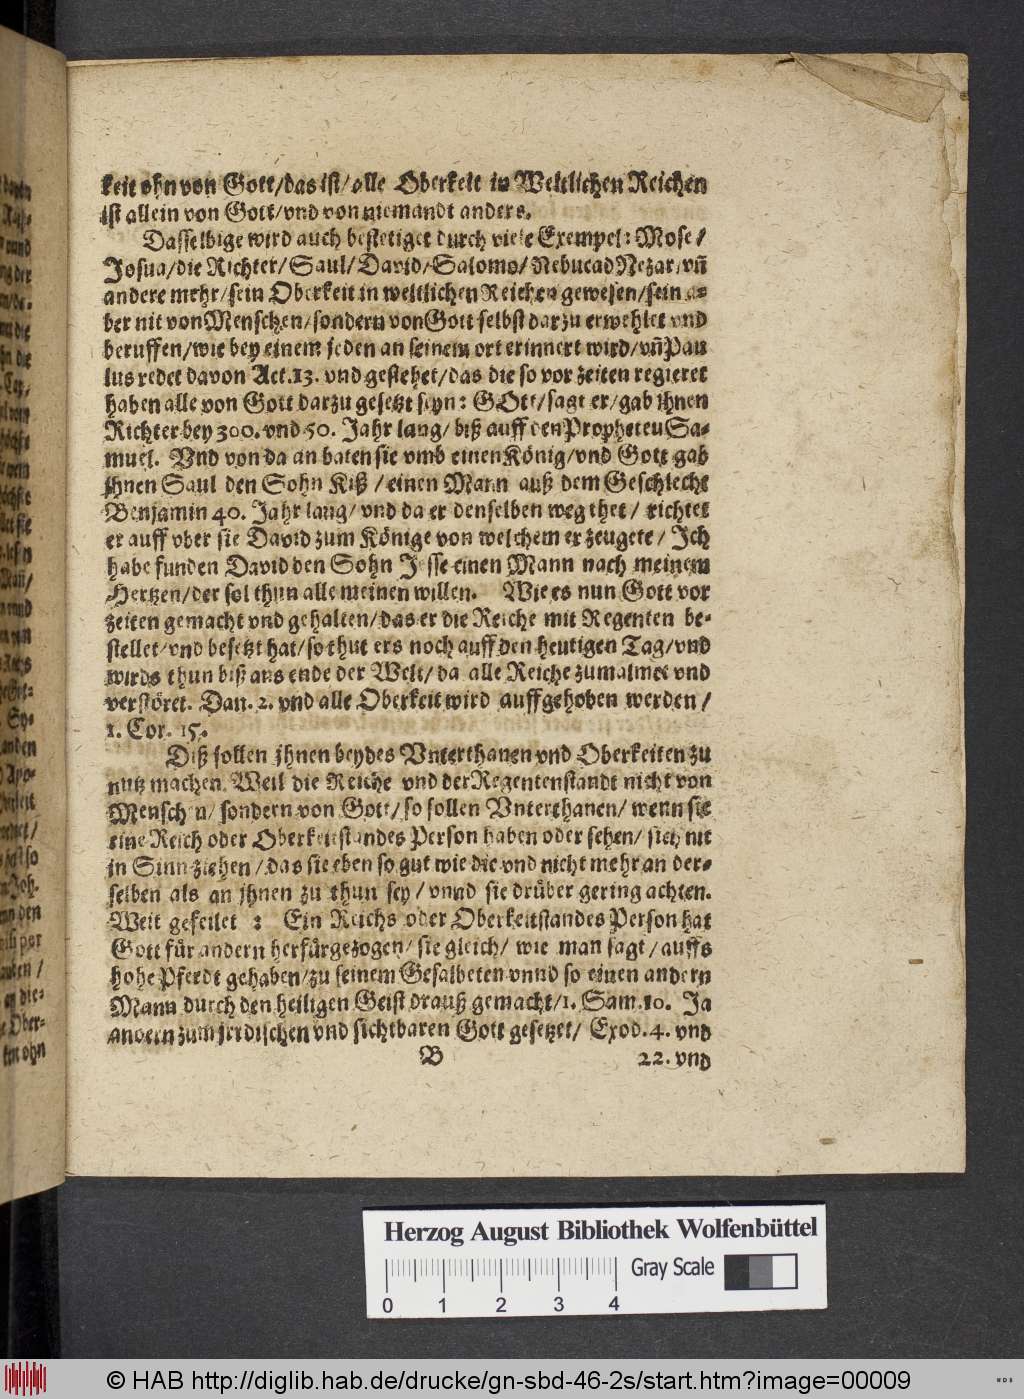 keit ohn von Gott/das ist/alle Oberkeit in Weltlichen Reichen
ist allein von Gott/vnd von niemandt anders.
Dasselbige wird auch bestetiget durch viele Exempel: Mose/
Josua/die Richter/Saul/David/Salomo/NebucadNezar/vn̄
andere mehr/sein Oberkeit in weltlichen Reichen gewesen/sein a=
ber nit von Menschen/sondern von Gott selbst darzu erwehlet vnd
beruffen/wie bey einem jeden an seinem ort erinnert wird/vn̄ Pau
lus redet davon Act.13. vnd gestehet/das die so vor zeiten regieret
haben alle von Gott darzu gesetzt seyn: GOtt/sagt er/gab ihnen
Richter bey 300. vnd 50. Jahr lang/ biß auff den Propheten Sa=
muel. Vnd von da an baten sie vmb einen König/vnd Gott gab
ihnen Saul den Sohn Kiß /einen Mann auß dem Geschlecht
Benjamin 40. Jahr lang/ vnd da er denselben weg thet/ richtet
er auff vber sie David zum Könige von welchem er zeugete/ Ich
habe funden David den Sohn Jesse einen Mann nach meinem
Hertzen/der sol thun alle meinen willen. Wie es nun Gott vor
zeiten gemacht vnd gehalten/das er die Reiche mit Regenten be=
stellet/vnd besetzt hat/so thut ers noch auff den heutigen Tag/vnd
wirds thun biß ans ende der Welt/da alle Reiche zumalmet vnd
verstöret. Dan. 2. vnd alle Oberkeit wird auffgehoben werden/
1. Cor. 15.
Diß sollen jhnen beydes Vnterthanen vnd Oberkeiten zu
nutz machen. Weil die Reiche vnd der Regentenstandt nicht von
Menschen/ sondern von Gott/ so sollen Vnterthanen/ wenn sie
eine Reich oder Oberkeitstandes Person haben oder sehen/ nit
in Sinn ziehen/das sie eben so gut wie die vnd nicht mehr an der=
selben als an jhnen zu thun sey/ vnnd sie drüber gering achten.
Weit gefeilet : Ein Reichs oder Oberkeitstandes Person hat
Gott für andern herfürgezogen/ sie gleich/ wie man sagt/auffs
hohe Pferdt gehaben/zu seinem Gesalbeten vnnd so einen andern
Mann durch den heiligen Geist drauß gemacht/1. Sam.10. Ja
andern zum jrrdischen vnd sichtbaren Gott gesetzet/ Exod. 4. vnd
B 22. vnd
Herzog August Bibliothek Wolfenbüttel
Gray Scale
0 1 2 3 4
© HAB http://diglib.hab.de/drucke/gn-sbd-46-2s/start.htm?image=00009